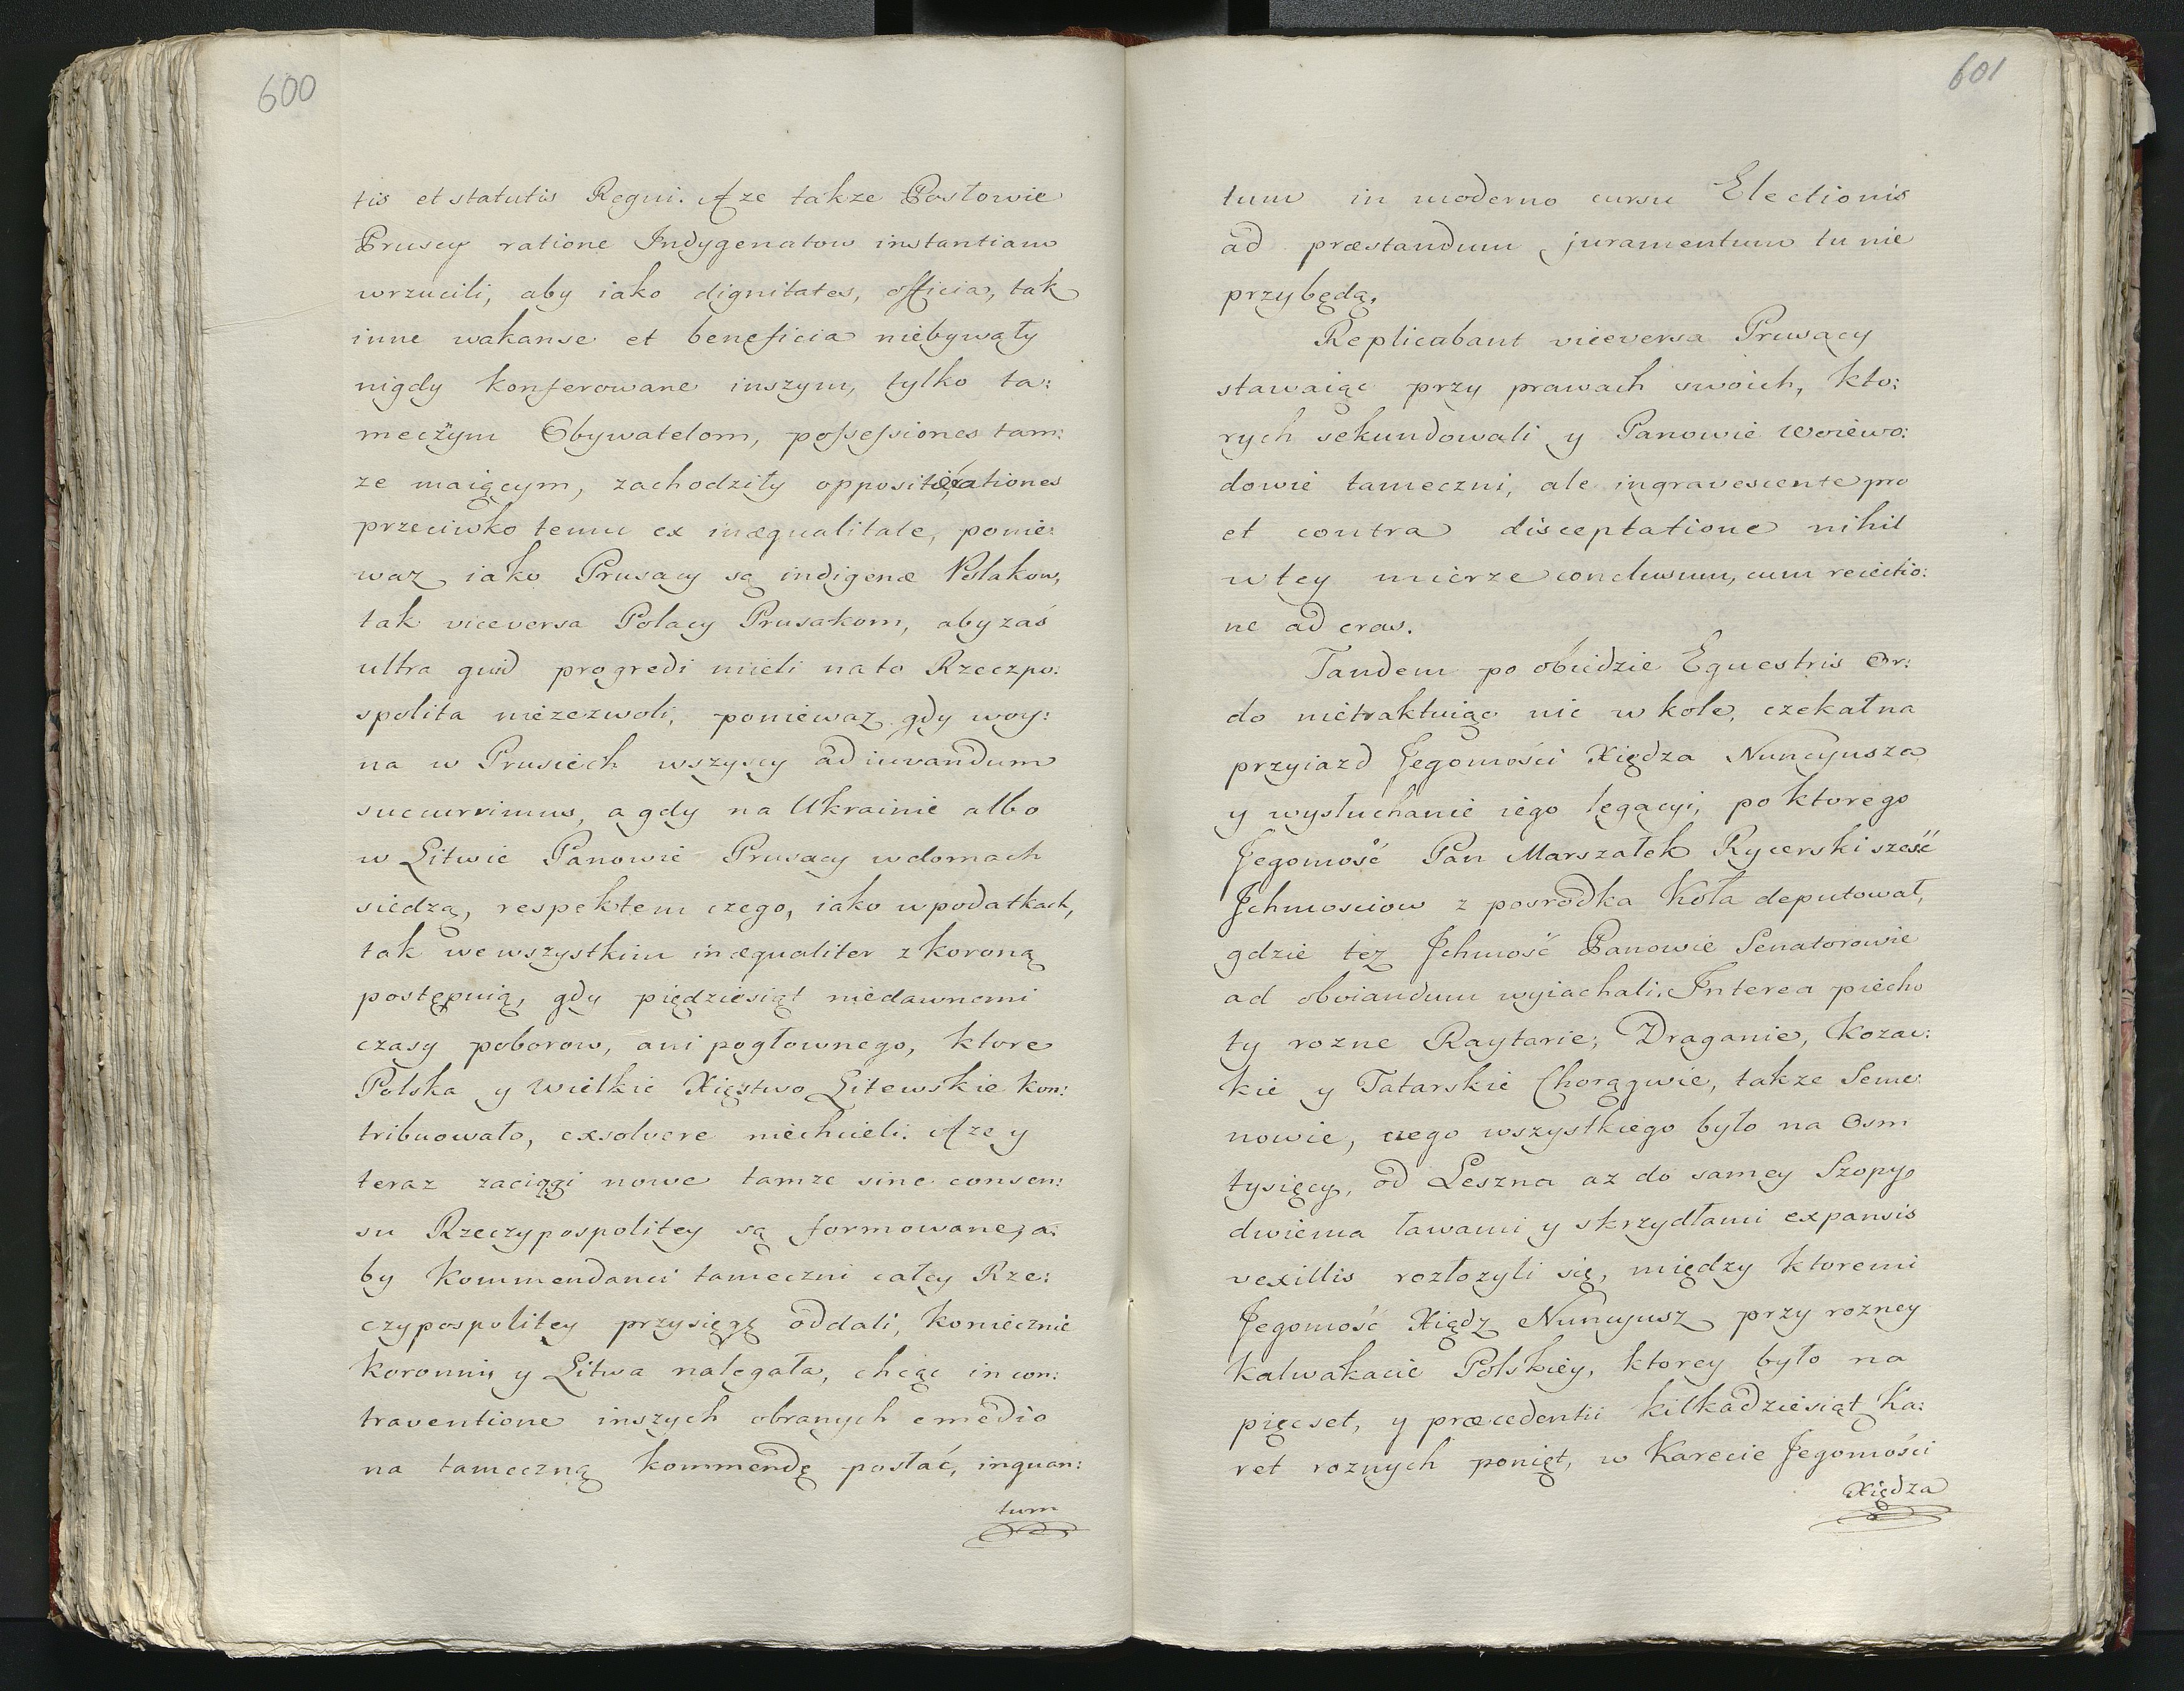 600
tis et statutis Regni. A ze takze Posłowie
Pruscy ratione Indygenatow instantiam
wrzucili, aby iako dignitates, officia, tak
inne wakanse et beneficia niebywały
nigdy konferowane inszym, tylko ta:
mecznym Obywatelom, possessiones tam:
ze maiącym, zachodziły
przeciwko temu ex inæqualitate, ponie:
waz iako Prusacy są indigenæ Polakow,
tak viceversa Polacy Prusakom, aby zaś
ultra quid progredi mieli na to Rzeczpo:
spolita niezezwoli, poniewaz gdy woy:
na w Prusiech wszyscy ad iuvandum
succurrimus, a gdy na Ukrainie albo
w Litwie Panowie Prusacy w domach
siedzą, respektem czego, iako w podatkach,
tak we wszystkim inæqualiter z koroną
postępuią, gdy piędziesiąt niedawnemi
czasy poborow, ani pogłownego, ktore
Polska y Wielkie Xięstwo Litewskie kon:
tribuowało, exsolvere niechcieli. A ze y
teraz zaciągi nowe tamze sine consen:
su Rzeczypospolitey są formowane, a:
by kommendanci tameczni całey Rze:
czypospolitey przysięgę oddali, koniecznie
koronni y Litwa nalegała, chcąc in con:
traventione inszych obranych e medio
na tameczną kommendę posłać, inquan:
tum
601
tum in moderno cursu Electionis
ad præstandum juramentum tu nie
przybędą.
Replicabant viceversa Prusacy
stawaiąc przy prawach swoich, kto:
rych sekundowali y Panowie Woiewo:
dowie tameczni, ale ingravescente pro
et contra disceptatione nihil
w tey mierze conclusum, cum reiectio:
ne ad cras.
Tandem po obiedzie Equestris Or:
do nietraktuiąc nic w kole, czekał na
przyiazd Jegomości Xiędza Nuncyusza
y wysłuchanie iego legacyi, po ktorego
Jegomość Pan Marszałek Rycerski sześć
Ichmosciow z posrodka Koła deputował,
gdzie też Ichmość Panowie Senatorowie
ad obviandum wyiachali. Interea piecho
ty rozne Raytarie, Draganie, Kozac:
kie y Tatarskie Chorągwie, takze Seme:
nowie, czego wszystkiego było na Osm
tysięcy, od Leszna az do samey Szopy,
dwiema ławami y skrzydłami expansis
vexillis rozłozyli się, między ktoremi
Jegomość Xiądz Nuncyusz przy rozney
kalwakacie Polskiey, ktorey było na
pięcset, y præcedentii kilkadziesiąt Ka:
ret roznych poniąt, w Karecie Jegomości
Xiędza